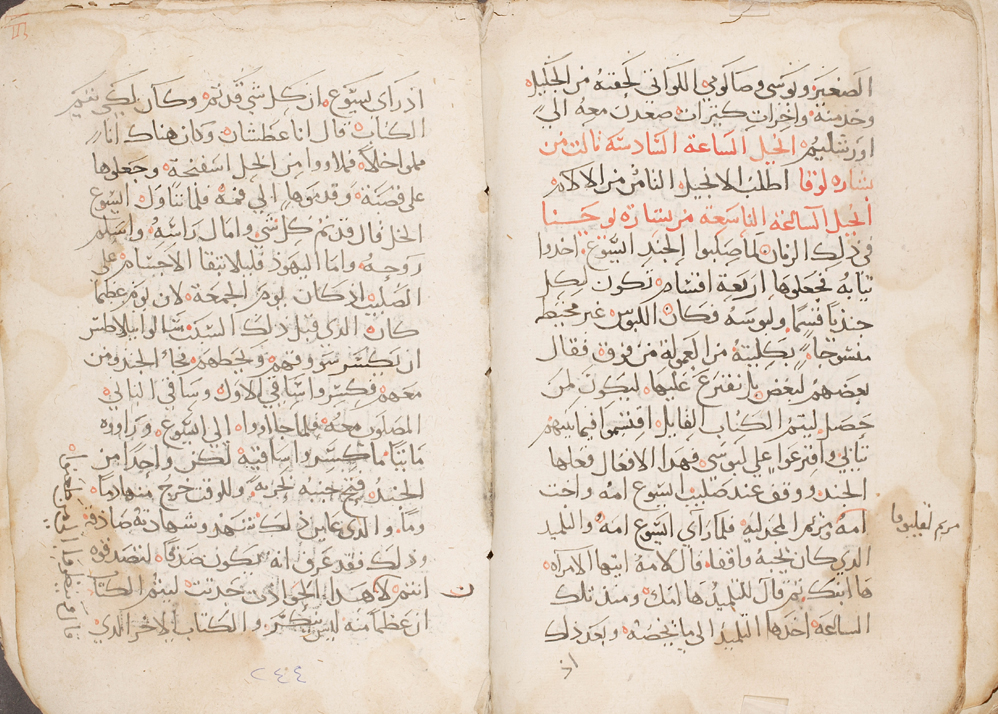 الصغير ويوسي وصالومي اللواتي لحقنه من الجليل
وخدمنه واخرات كثيرات صعدن معه الي
اورشليم انجيل الساعة السادسة ثالث من
بشاره لوقا اطلب الانجيل الثامن من الالام
انجيل الساعة التاسعة من بشارة يوحنا
في ذلك الزمان لما صلبوا الجند ايسوع اخدوا
ثيابه فجعلوها اربعة اقسام تكون لكل
جندياً قسماً ولبوسه وكان اللبوس غير مخيطه
منسوجاً بكليته من العمولة من فوق فقال
بعضهم لبعض بل نقترع عليها ليكون لمن
حصل ليتم الكتاب القايل اقتسموا فيما بينهم
ثيابي واقترعوا علي لبوسي فهدا الافعال فعلها
الجند ووقف عند صليب ايسوع امه واخت
امه ومريم المجدلية فلما راي ايسوع امه والتلميد
الدي كان يحبه واقفا قال لامه ايتها الامراه
ها ابنك ثم قال للتلميد ها امك ومند تلك
الساعة اخدها التلميد الي ما يخصه وبعد دلك
مريم لقليوفا
اد راي ايسوع ان كل شي قد تم وكان لكي يتم
الكتاب قال انا عطشان وكان هناك اناء
مملوا خلاً فملاووا من الخل اسفنجة وجعلوها
علي قصبة وقدموها الي فمه فلما تناول ايسوع
الخل قال قد تم كل شي وامال راسه واسلم
روحه واما اليهود فليلا تبقا الاجسام علي
الصليب اد كان يوم الجمعة لان يوم عظيماً
كان الدي قبل دلك السبت سالوا بيلاطس
ان يكسر سوقهم ويحطهم فجاء الجند ومن
معهم فكسروا ساقي الاول وساقي التاني
المصلوب معه فلما جاووا الي ايسوع وراوه
مايتاً ما كسروا ساقيه لكن واحداً من
الجند فتح جنبه بحربة وللوقت خرج منها دماً
وماء والدي عاين دلك شهد وشهادته صادقة
ودلك فقد عرف انه يكون صدقاً لتصدقوه
انتم لان هدا الحوادث حدتت ليتم الكتاب
ان عظماً منه ليس ينكسر والكتاب الاخر الدي
٢٤٤